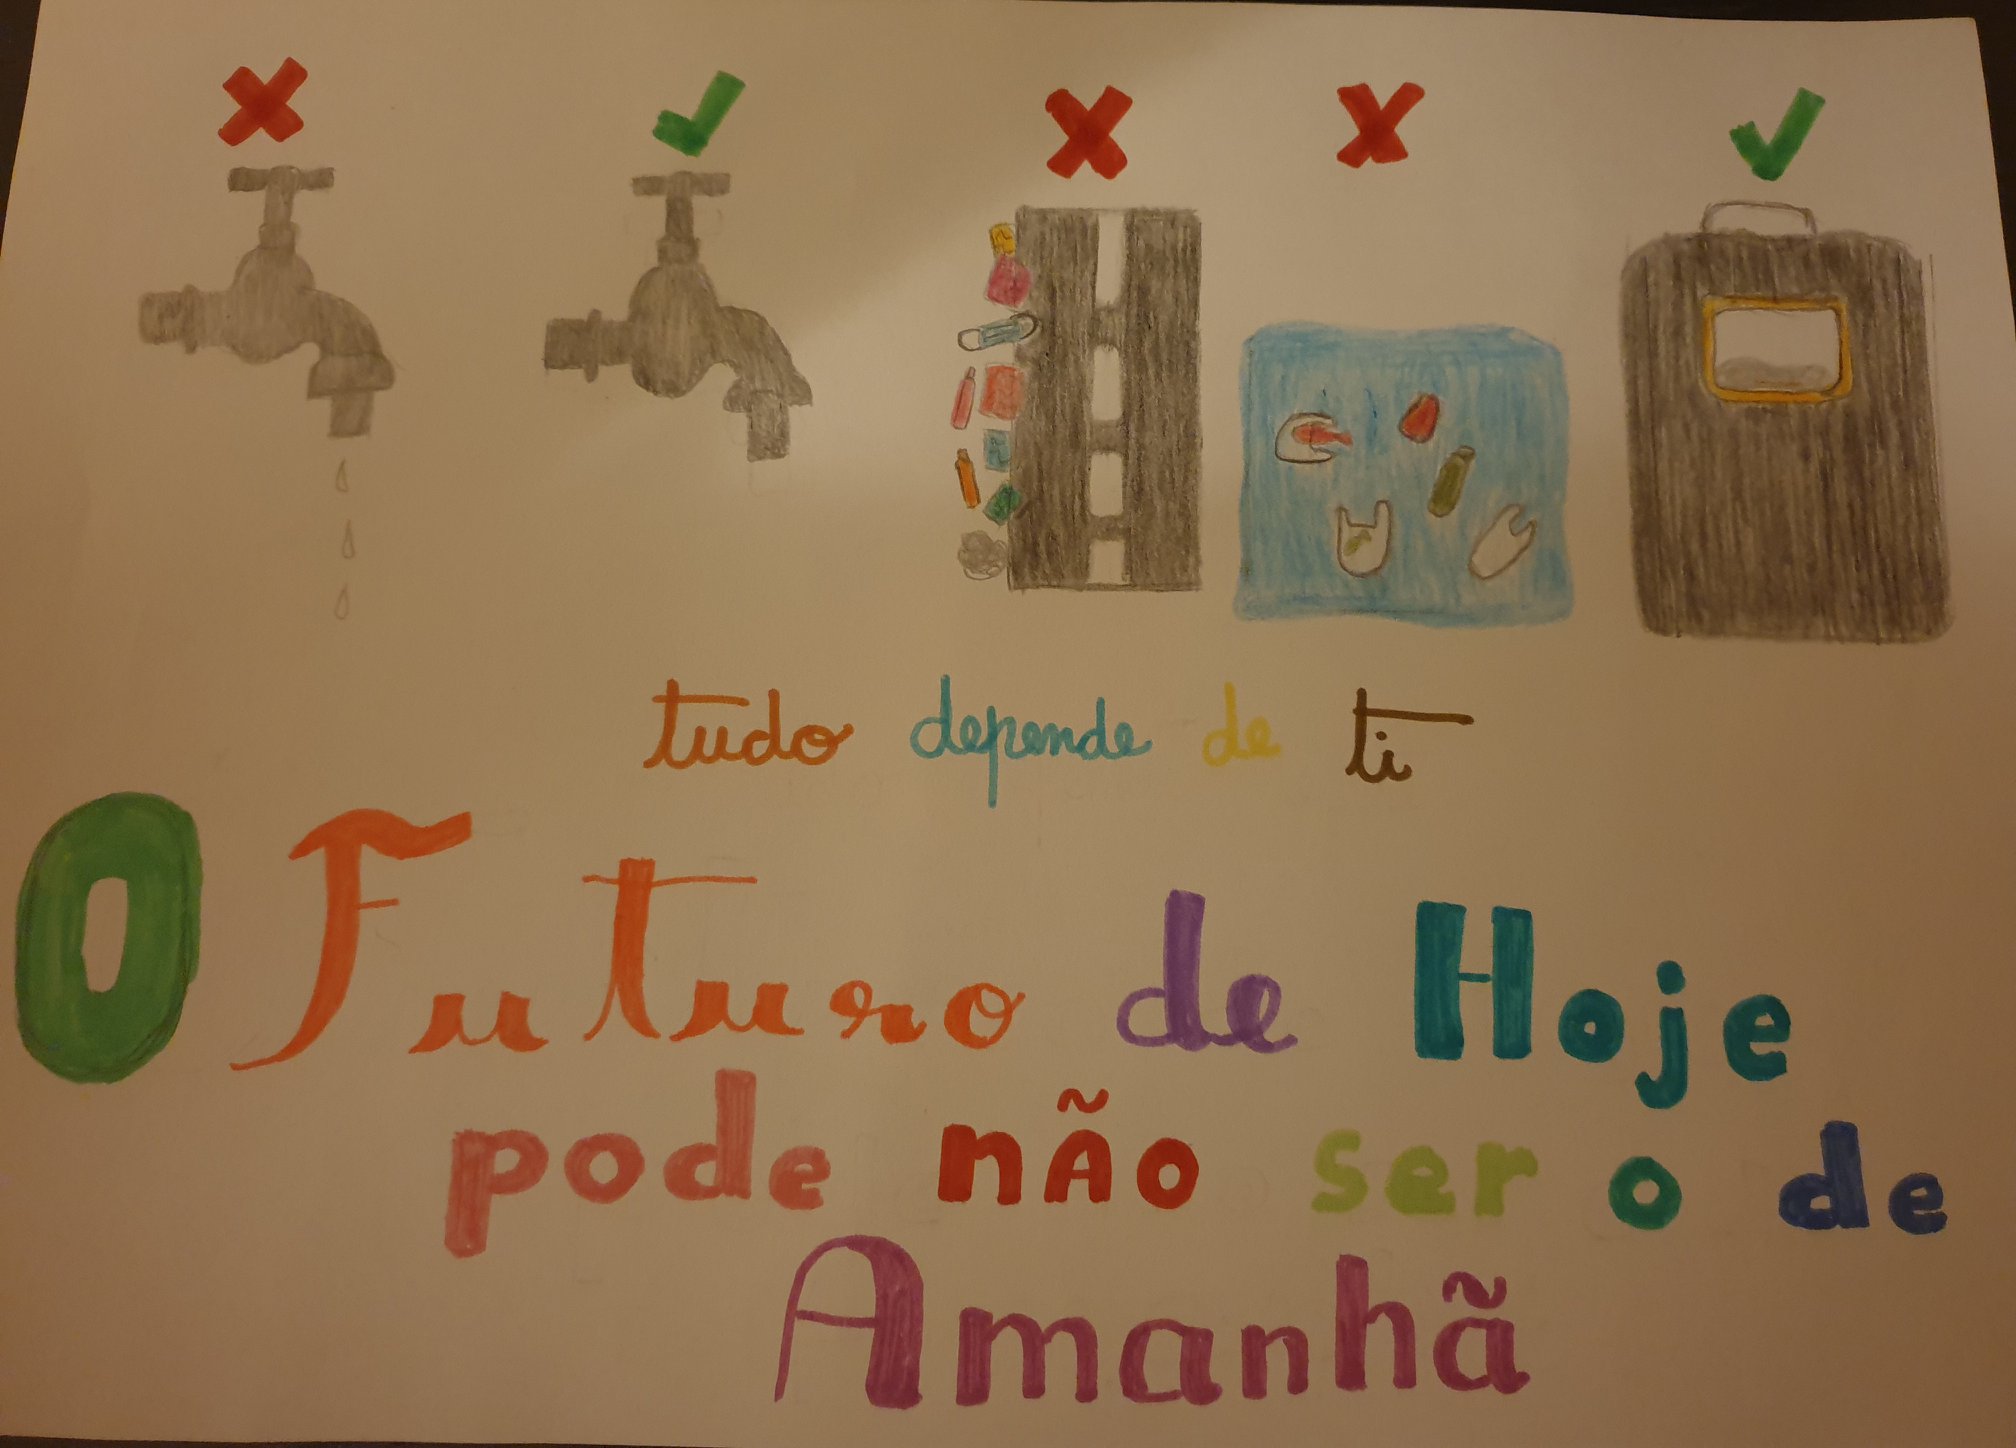 tudo depende de ti
O Futuro de Hoje
pode não ser o de
Amanhã